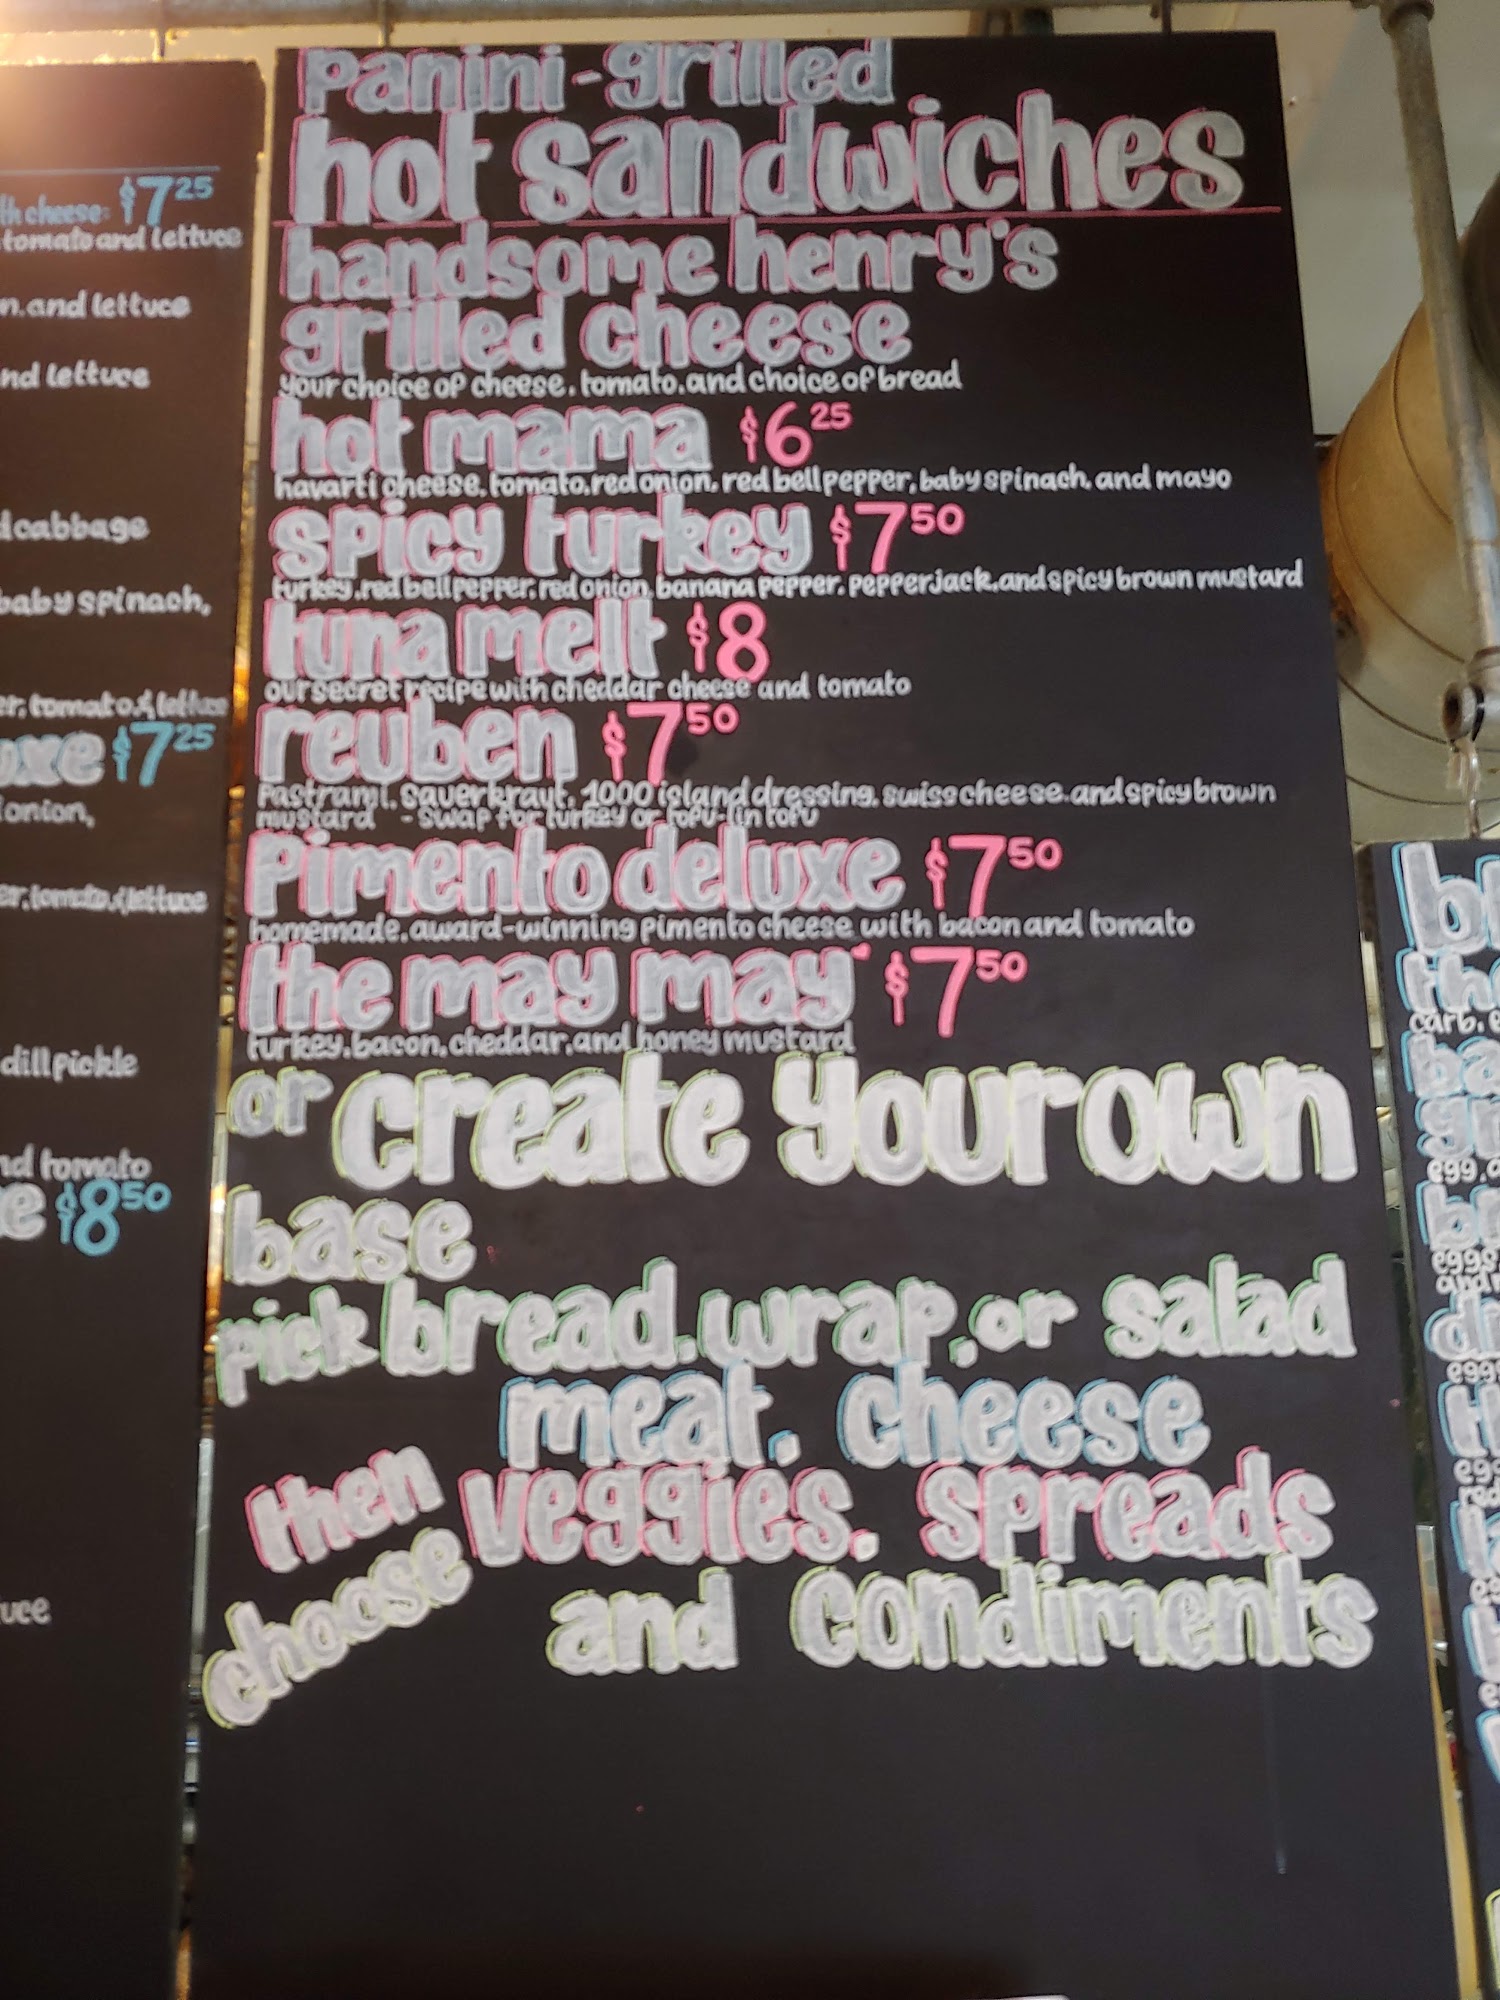 th cheese: $7.25
tomato and lettuce
n, and lettuce
nd lettuce
d cabbage
baby spinach,
er, tomato, & lettuce
uxe $7.25
onion,
er, tomato, & lettuce
dill pickle
nd tomato
e $8.50
uce
panini-grilled
hot sandwiches
handsome henry's
grilled cheese
your choice of cheese, tomato, and choice of bread
hot mama $6.25
havarti cheese, tomato, red onion, red bell pepper, baby spinach, and mayo
spicy turkey $7.50
turkey, red bell pepper, red onion, banana pepper, pepperjack, and spicy brown mustard
tuna melt $8
our secret recipe with cheddar cheese and tomato
reuben $7.50
pastrami, sauerkraut, 1000 island dressing, swiss cheese, and spicy brown
mustard - swap for turkey or tofu-lin tofu
pimento deluxe $7.50
homemade, award-winning pimento cheese with bacon and tomato
the may may $7.50
turkey, bacon, cheddar, and honey mustard
or create your own
base
pick bread, wrap, or salad
meat, cheese
then veggies, spreads
choose and condiments
carb, e
egg, a
eggs
and
eggs